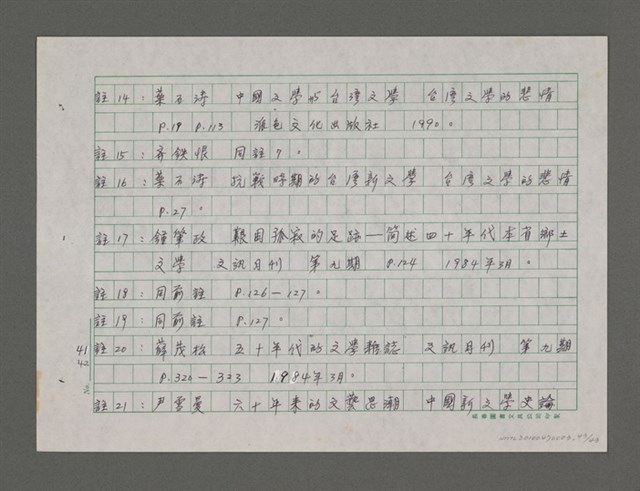 註14：葉石濤 中國文學與台灣文學 台灣文學的悲情
P.19 P.113 派色文化出版社 1990。
註15：齊鉄恨 同註7。
註16：葉石濤 抗戰時期的台灣新文學 台灣文學的悲情
P.27。
註17：鍾肇政 艱困孤寂的足跡—簡述四十年代本省鄉土
文學 文訊月刊 第九期 P.124 1984年3月。
註18：同前註 P.126—127。
註19：同前註 P.127。
註20：薛茂松 五十年代的文學雜誌 文訊月刊 第九期
P.326—323 1984年3月。
註21：尹雪曼 六十年來的文藝思潮 中國新文學史論
41
42
No.